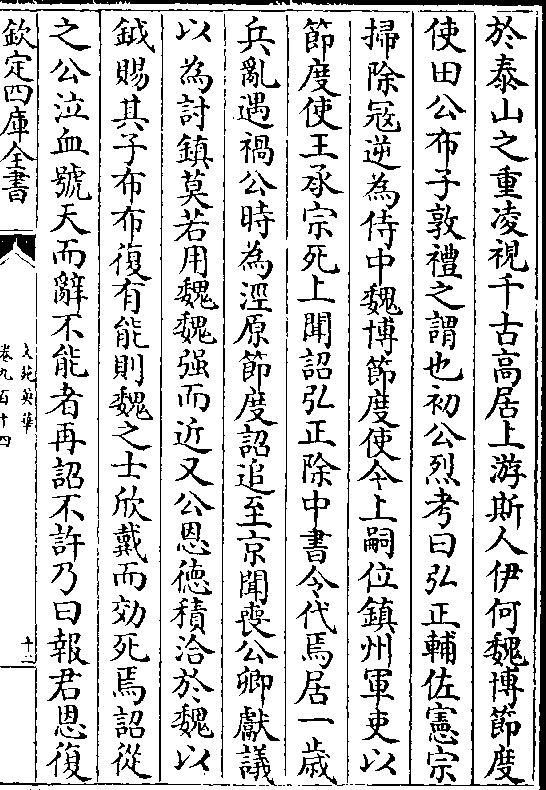 於泰山之重凌視千古高居上游斯人伊何魏博節度
使田公布子敦禮之謂也初公烈考曰弘正輔佐憲宗
掃除冦逆為侍中魏博節度使今上嗣位鎮州軍吏以
節度使王承宗死上聞詔弘正除中書令代焉居一歳
兵亂遇禍公時為涇原節度詔追至京聞喪公卿獻議
以為討鎮莫若用魏魏强而近又公恩徳積洽於魏以
鉞賜其子布布復有能則魏之士欣戴而効死焉詔從
之公泣血號天而辭不能者再詔不許乃曰報君恩復
欽定四庫全書
文苑英華
卷九百十四
十二